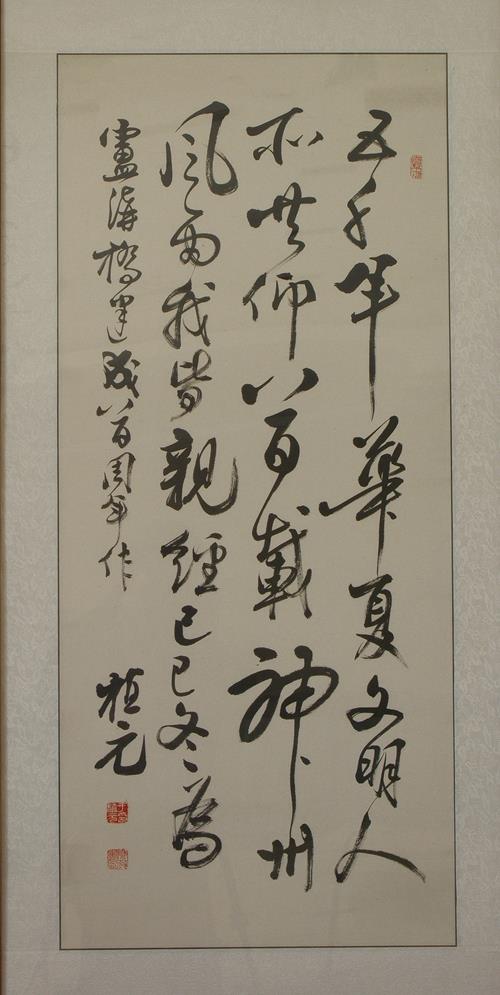 五千年華夏文明人
所共仰八百載神州
風雨我皆親經己巳冬為
盧溝橋建成八百周年作
植元